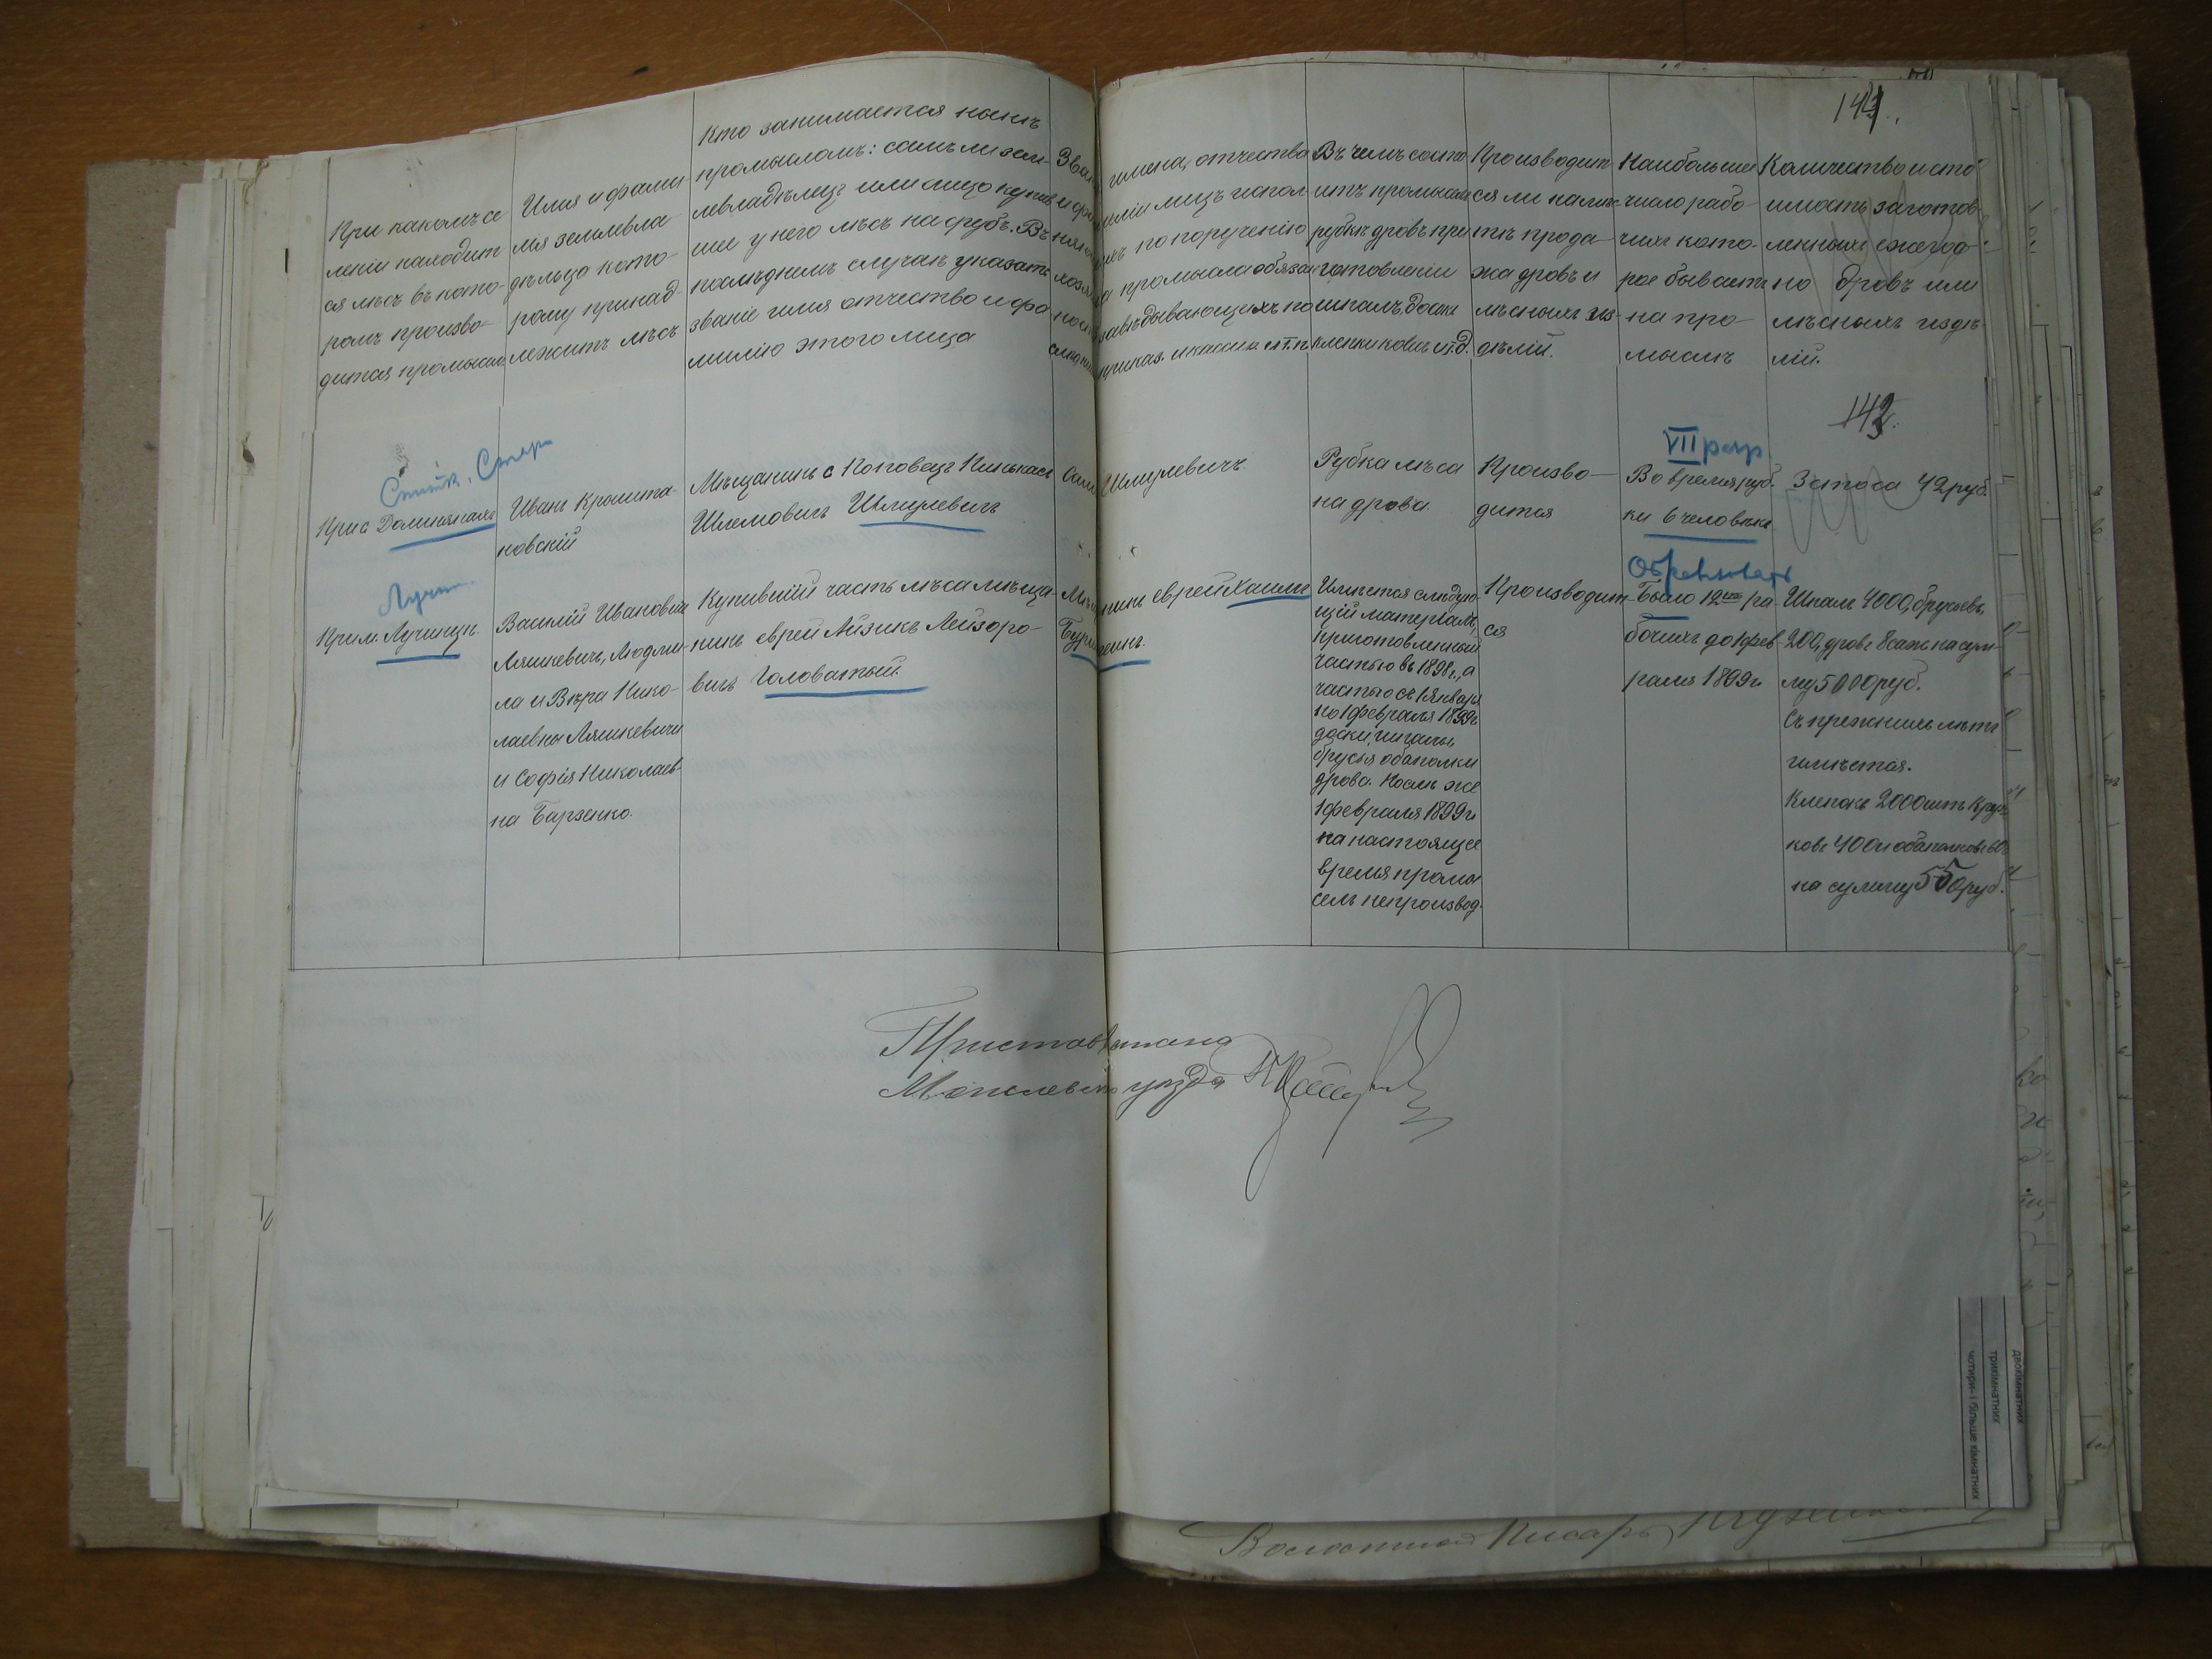 144.
При какомъ се
леніи находит
ся лѣсъ въ кото-
ромъ произво-
дится промысел
Имя и фами
лія землевла
дѣльца кото-
рому принад-
лежитъ лѣсъ
Кто занимается нынѣ
промысломъ: самъ ли зем-
левладѣлецъ или лицо купив
шее у него лѣсъ на срубъ. Въ
послѣднемъ случаѣ указать
званіе имя отчество и фа
милію этого лица
имена, отчества
иліи лицъ испол
по порученію
промысла обязан
завѣдывающихъ по
приказ. и кассир. и т. п.
Въ чемъ состо
итъ промыселъ
рубкѣ дровъ при
готовленіи
шпалъ, досок
клепки ковен. и т. д.
Производит
ся ли на мѣс
тѣ прода-
жа дровъ и
лѣсныхъ из-
дѣлій.
Наибольшее
число рабо-
чихъ кото-
рое бываетъ
на про-
мыслѣ
Количество и сто
имость заготов
ленныхъ ежегод-
но дровъ или
лѣсныхъ издѣ
лій.
142.
При с Долинянахъ
Иванъ Крошта-
новскій
Мѣщанинъ с Коповецъ Пинькасъ
Шлемовичъ Шмулевичъ
Сам
Шмулевичъ
Рубка лѣса
на дрова
Произво-
дится
VII разр
Во время руб-
ки 6 человѣкъ
За 42 руб.
Лучин
При м. Лучинцѣ.
Василій Ивановичъ
Ляшкевичъ, Людми-
ла и Вѣра Нико-
лаевны Ляшкевичи
и Софія Николаев-
на Барзенко.
Купившій часть лѣса мѣща-
нинъ еврей Айзикъ Лейзоро-
вичъ Головатый.
еврей Хаимъ
Имѣется слѣдую-
щій матеріалъ,
приготовленный
частью въ 1898 г., а
частью съ 1 Января
по 1 февраля 1899 г.
доски, шпалы,
брусья обаполки
дрова. Послѣ же
1 февраля 1899 г.
на настоящее
время промы
селъ не производ.
Производит-
ся
Было 12 ра-
бочихъ до 1 фев-
раля 1899 г.
Шпалъ 4000, брусьевъ
200, дровъ 8 саж. на сум-
му 5000 руб.
Съ прежнихъ лѣтъ
имѣется.
Клепокъ 2000 шт.
ковъ 400 и обаполковъ 60
на сумму 550 руб.
Приставъ стана
Могилевскаго уѣзда
Волостной Писарь
двокімнатних
трикімнатних
чотири- і більше кімнатних